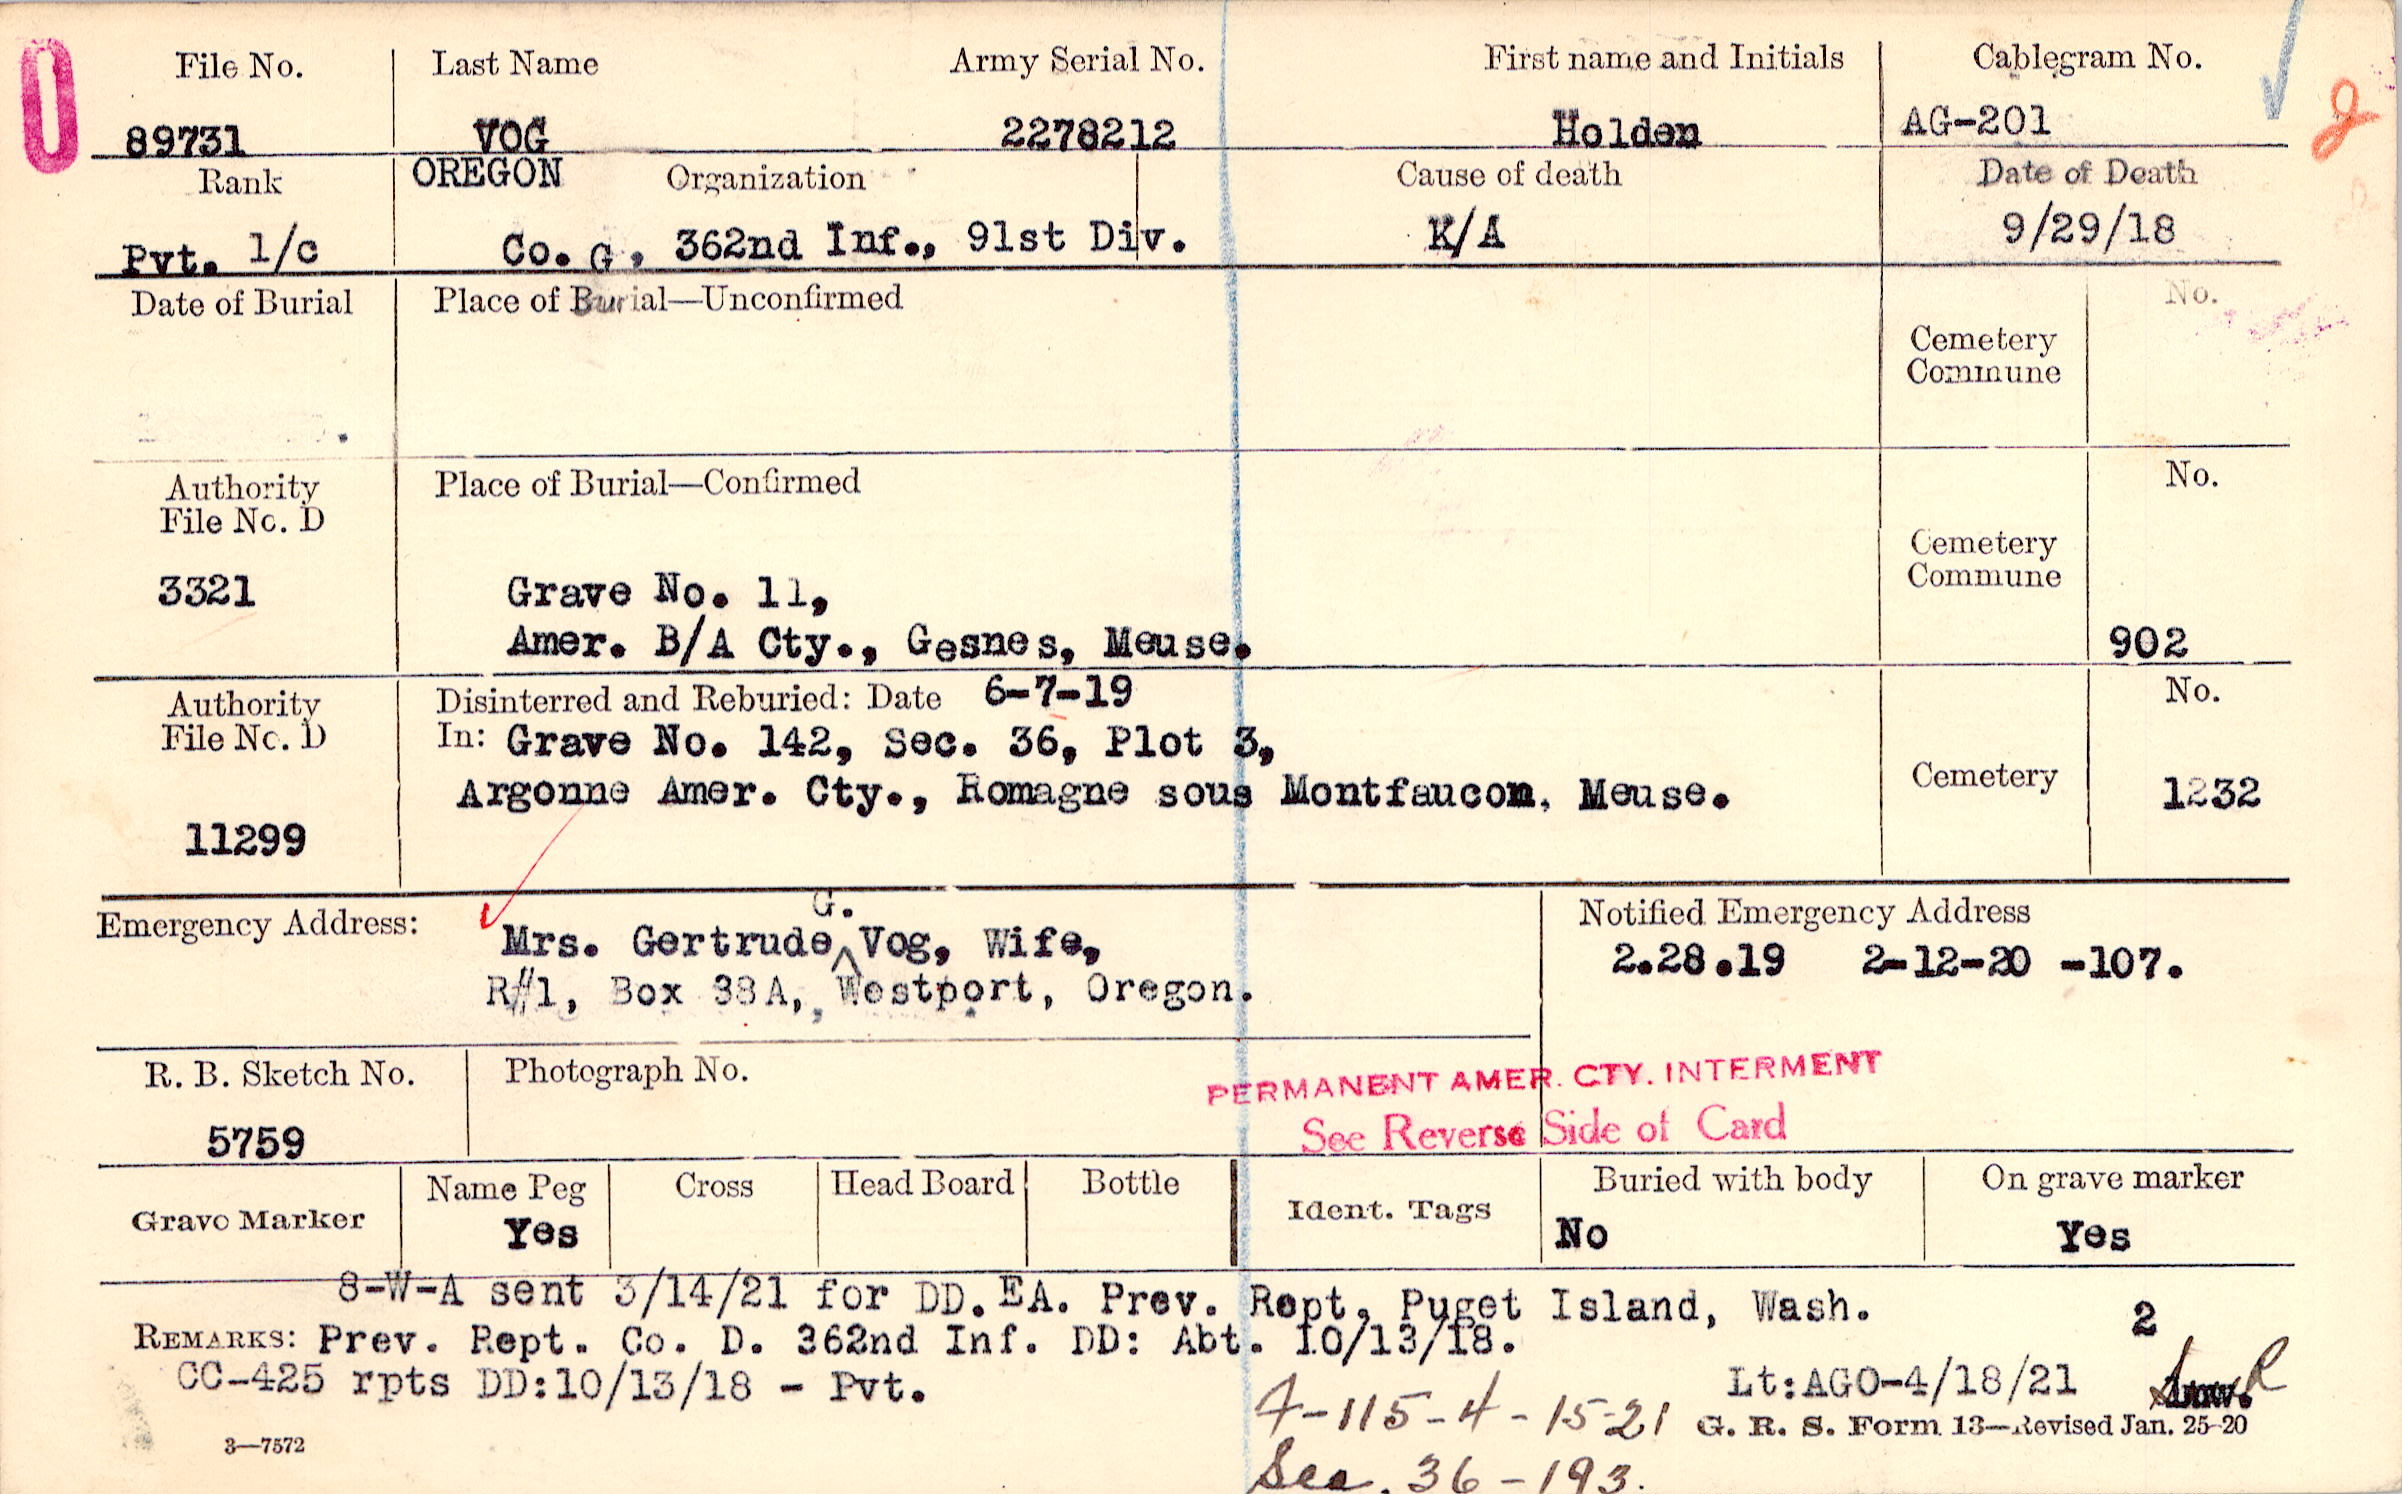 File No. Last Name Army Serial No. First name and Initials Cablegram No.
89731 VOG 2278212 Holden AG-201
Rank OREGON Organization Cause of death Date of Death
Pvt. 1/c Co. G, 362nd Inf., 91st Div. K/A 9/29/18
Date of Burial Place of Burial—Unconfirmed No.
Cemetery
Commune
Authority Place of Burial—Confirmed No.
File No. D
Cemetery
Commune
3321 Grave No. 11,
Amer. B/A Cty., Gesnes, Meuse. 902
Authority Disinterred and Reburied: Date 6-7-19 No.
File No. D In: Grave No. 142, Sec. 36, Plot 3,
Argonne Amer. Cty., Romagne sous Montfaucon, Meuse. Cemetery 1232
11299
G.
Emergency Address: Mrs. Gertrude Vog, Wife, Notified Emergency Address
R#1, Box 38A, Westport, Oregon. 2.28.19 2-12-20 -107.
R. B. Sketch No. Photograph No. PERMANENT AMER. CTY. INTERMENT
5759 See Reverse Side of Card
Grave Marker Name Peg Cross Head Board Bottle Ident. Tags Buried with body On grave marker
Yes No Yes
8-W-A sent 3/14/21 for DD. EA. Prev. Rept, Puget Island, Wash. 2
REMARKS: Prev. Rept. Co. D. 362nd Inf. DD: Abt. 10/13/18.
CC-425 rpts DD:10/13/18 - Pvt. Lt:AGO-4/18/21
4-115-4-15-21 G. R. S. Form 13—Revised Jan. 25-20
3—7572
Sec. 36-193.